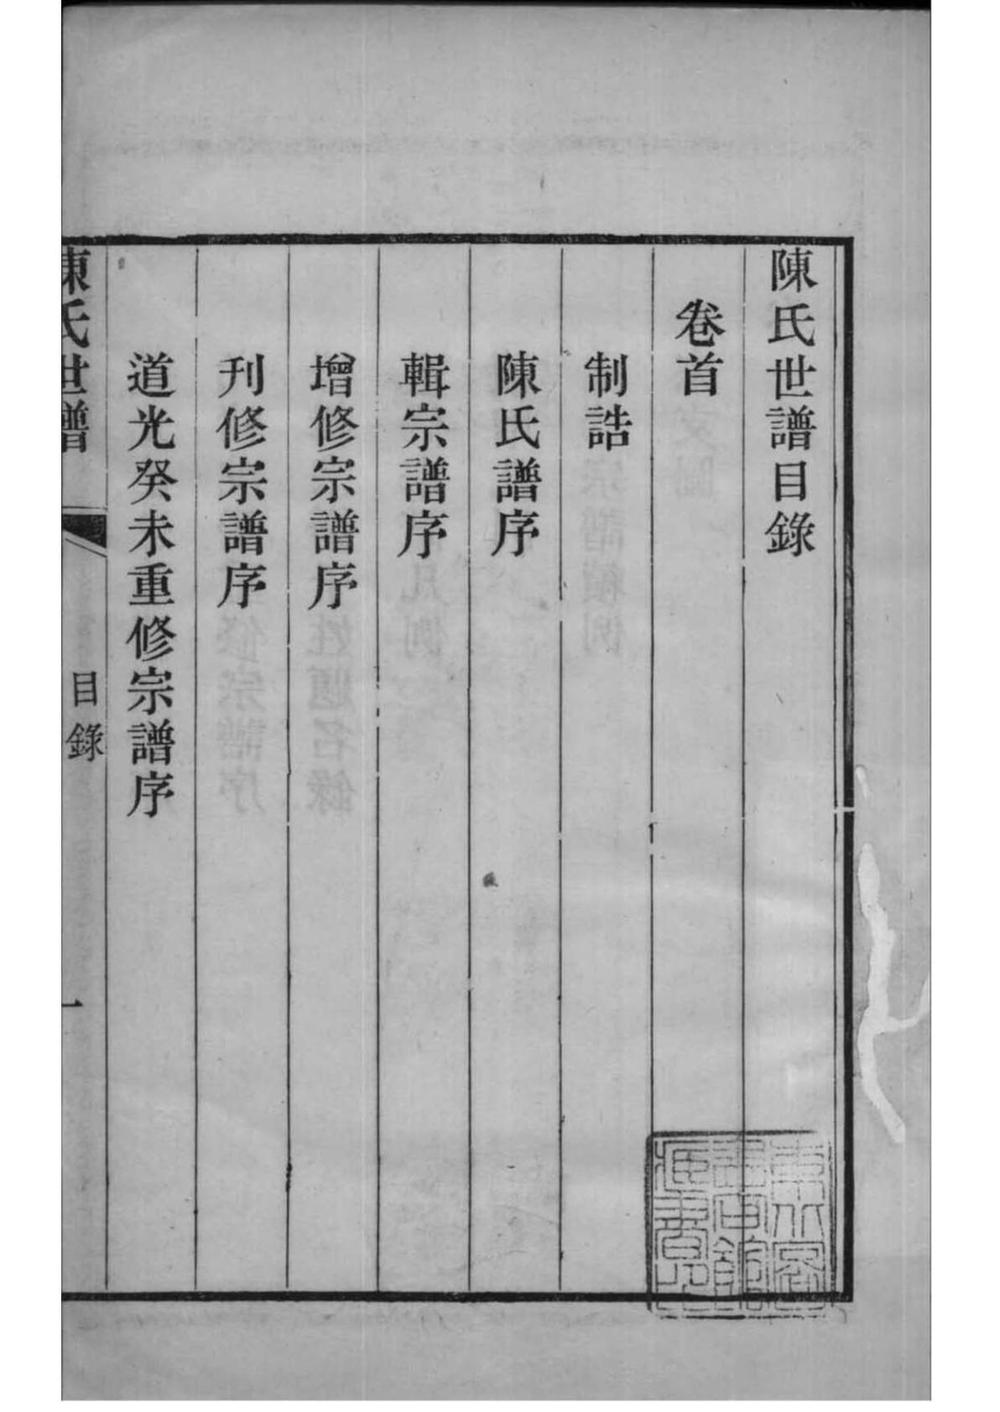 陳氏世譜目錄
卷首
制誥
陳氏譜序
輯宗譜序
增修宗譜序
刊修宗譜序
道光癸未重修宗譜序
陳氏世譜
目錄
一